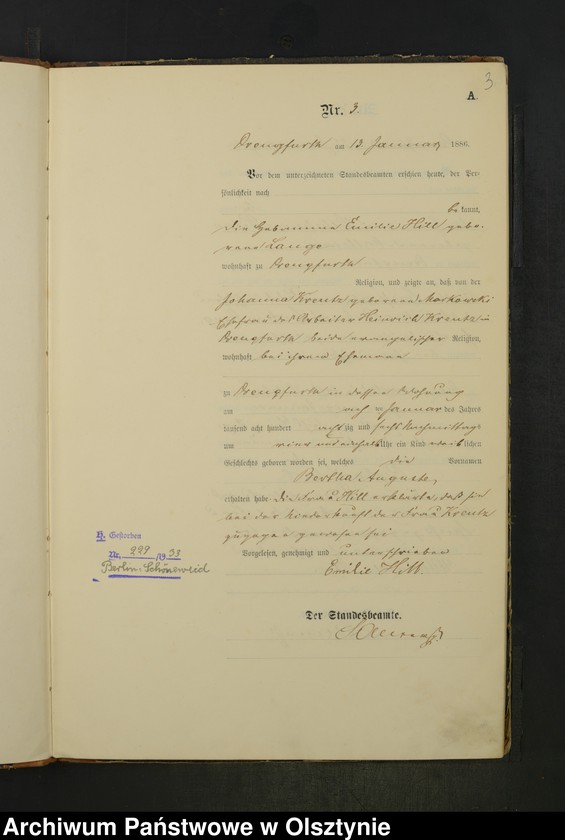 3
A.
Nr. 3.
Drengfurth am 13. Januar 1886.
Vor dem unterzeichneten Standesbeamten erschien heute, der Per-
sönlichkeit nach
bekannt,
die Hebamme Emilie Hill gebo-
rene Lange
wohnhaft zu Drengfurth
Religion, und zeigte an, daß von der
Johanna Kreutz geborenen Markowski
Ehefrau des Arbeiter Heinrich Kreutz in
Drengfurth beide evangelischer Religion,
wohnhaft bei ihrem Ehemann
zu Drengfurth in dessen Wohnung
am Januar des Jahres
tausend acht hundert achtzig und sechs Nachmittags
um vier und einhalb Uhr ein Kind weiblichen
Geschlechts geboren worden sei, welches die Vornamen
Bertha Auguste,
erhalten habe. die Frau Hill erklärte, daß sie
bei der Niederkunft der Frau Kreutz
zugegen gewesen sei
Vorgelesen, genehmigt und unterschrieben
Emilie Hill.
Der Standesbeamte.
H. Gestorben
Nr. 299 /1938
Berlin-Schöneweid
Archiwum Państwowe w Olsztynie